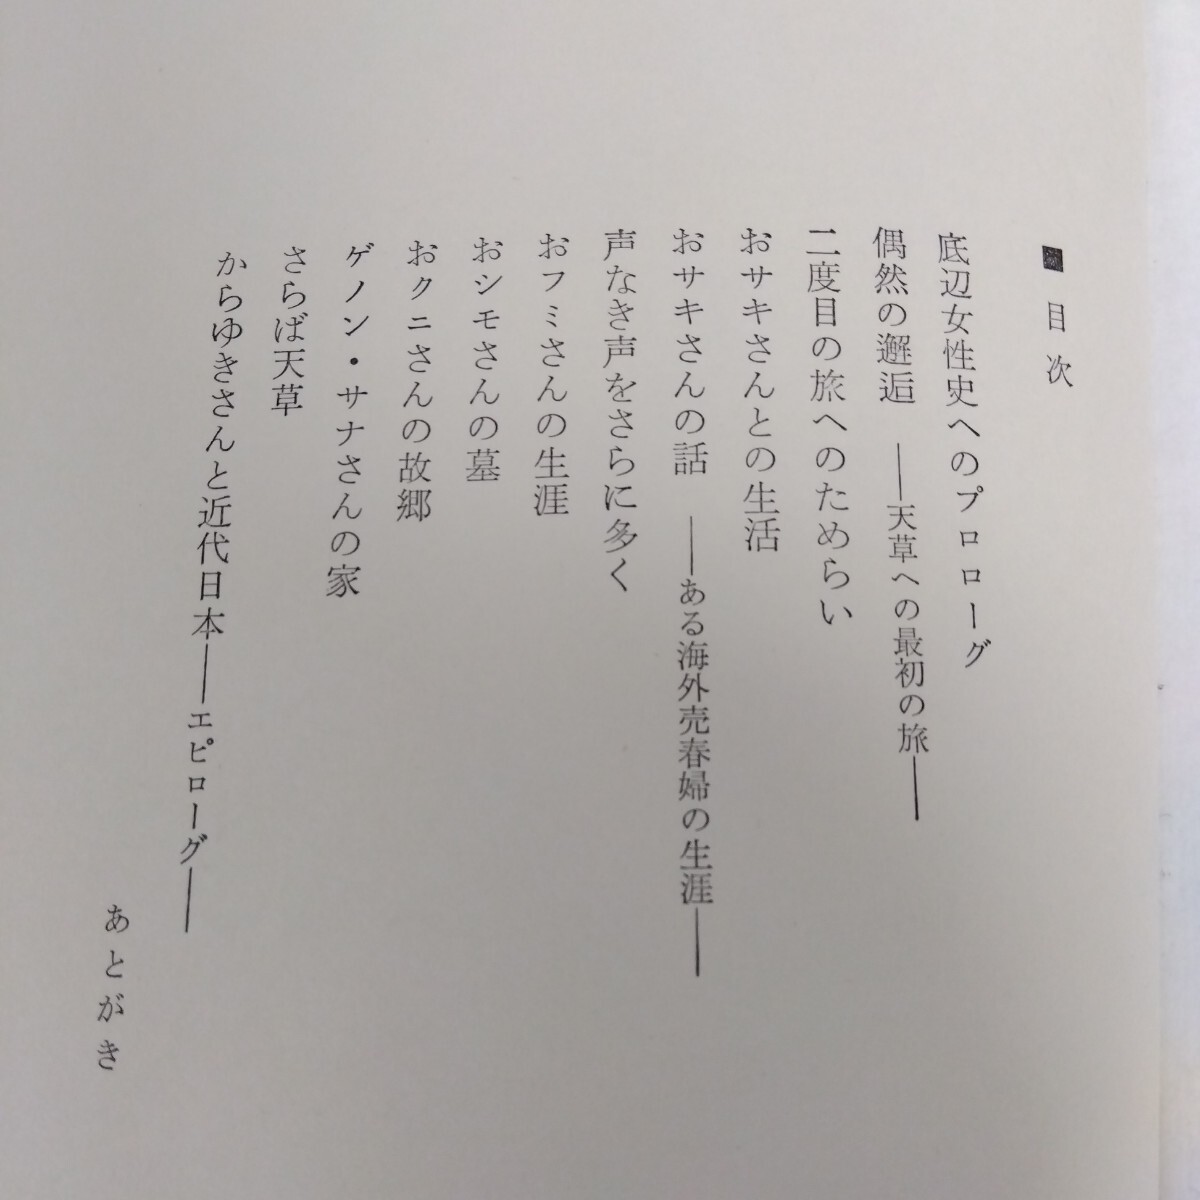 ■目次
底辺女性史へのプロローグ
偶然の邂逅 ――天草への最初の旅――
二度目の旅へのためらい
おサキさんとの生活
おサキさんの話 ――ある海外売春婦の生涯――
声なき声をさらに多く
おフミさんの生涯
おシモさんの墓
おクニさんの故郷
ゲノン・サナさんの家
さらば天草
からゆきさんと近代日本――エピローグ――
あとがき